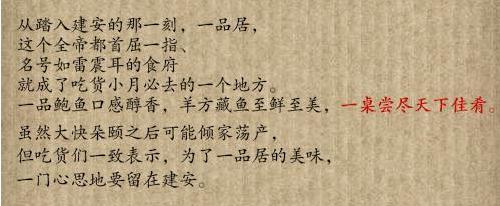 从踏入建安的那一刻，一品居，
这个全帝都首屈一指、
名号如雷震耳的食府
就成了吃货小月必去的一个地方。
一品鲍鱼口感醇香，羊方藏鱼至鲜至美，一桌尝尽天下佳肴。
虽然大快朵颐之后可能倾家荡产，
但吃货们一致表示，为了一品居的美味，
一门心思地要留在建安。